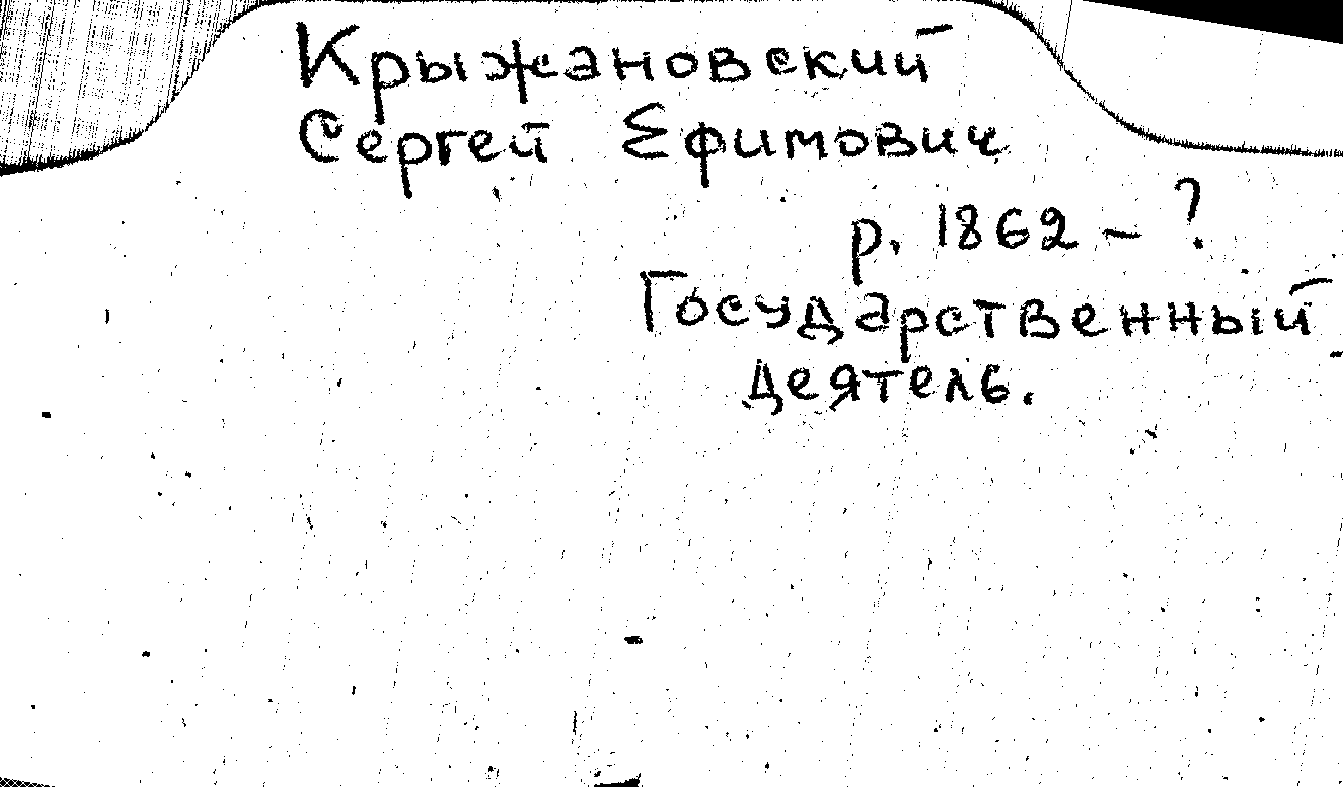 Крыжановский
Сергей Ефимович
р. 1862 - ?
Государственный
деятель.